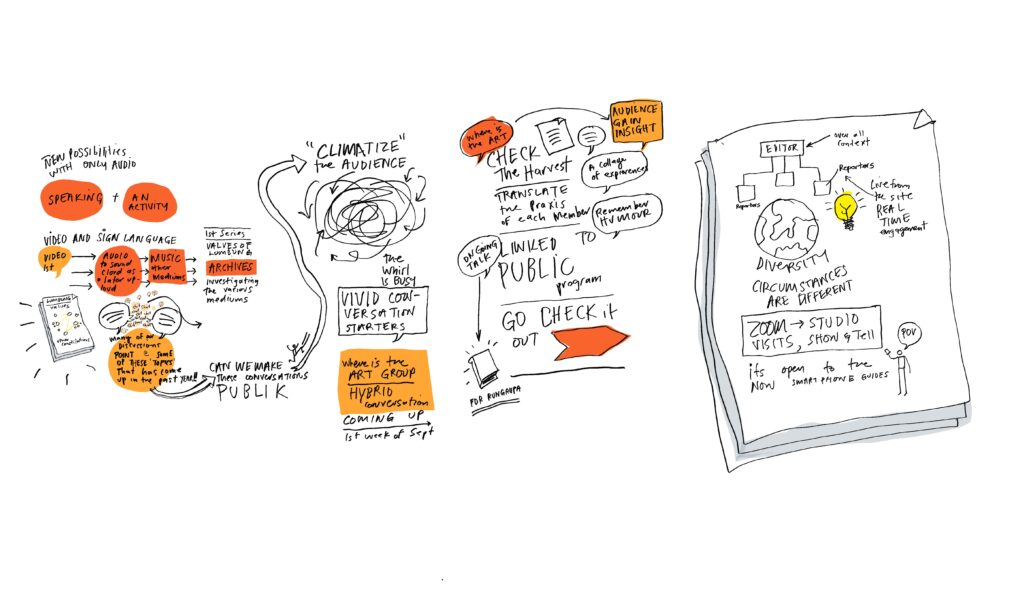 NEW POSSIBILITIES
WITH ONLY AUDIO
SPEAKING + AN
ACTIVITY
VIDEO AND SIGN LANGUAGE
VIDEO
1st
AUDIO
to sound
cloud as
a later up-
load
MUSIC
other
Mediums
1st Series
VALUES OF
LUMBUNG
ARCHIVES
investigating
the various
mediums
LUMBUNG
values
many of our
Discussions
POINT 2 some
OF THESE 'TOPICS'
That has come
up in the past YEAR!!
CAN WE MAKE
these conversations
PUBLIK
"CLIMATIZE"
the AUDIENCE
the
Whirl
is BUSY
VIVID CON-
VERSATION
STARTERS
where is the
ART GROUP
HYBRID
conversation
COMING UP
1st week of Sept
where is
the ART
AUDIENCE
GAIN
INSIGHT
CHECK
The Harvest
a collage
of experiences
TRANSLATE
the Praxis
of each Member
Remember
HUMOUR
ONGOING
TALK
LINKED TO
PUBLIC
program
GO CHECK it
OUT
FOR RURUNGRUPA
over all
context
EDITOR
Reporters
Reportors
Live from
the site
REAL
TIME
engagement
DIVERSITY
CIRCUMSTANCES
ARE DIFFERENT
ZOOM → STUDIO
VISITS, SHOW & Tell
POV
its open to the
NOW SMARTPHONE GUIDES